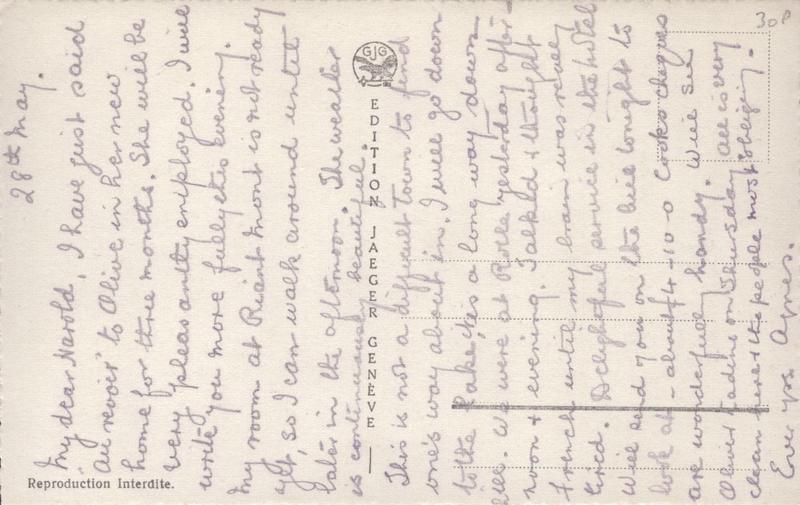 28th May.
My dear Harold, I have just said
"Au revoir" to Olive in her new
home for three months. She will be
very pleasantly employed. I will
write you more fully this evening.
My room at Riant Mont is not ready
yet, so I can walk around until
later in the afternoon. The weather
is continuously beautiful.
This is not a difficult town to find
one's way about in. I will go down
to the Lake, it's a long way down
hill. We were at Rolle yesterday after-
noon & evening. Talked & thought
French until my brain was really
tired. Delightful service in the hotel
Will send you on the bill tonight to
look at - about £4-10-0 Cooks cheques
are wonderfully handy. Will see
Olive's on Thursday All is very
clean here & the people most obliging.
Ever yrs Agnes.
30P
GJG
EDITION JAEGER GENÈVE
Reproduction Interdite.